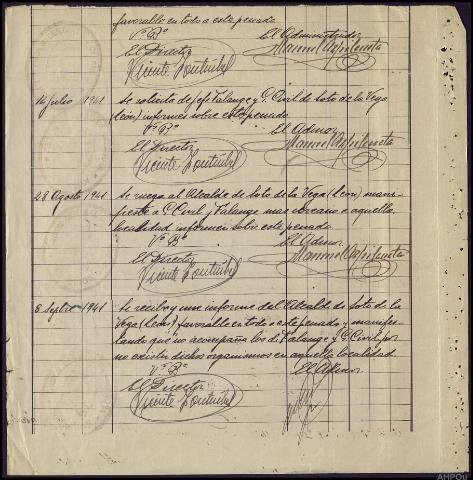 favorable en todo a este penado
Vº Bº El Administrador
El Director Manuel
Vicente
14 julio 1941 Se solicita de jefe Falange y G. Civil de Soto de la Vega
(León) informes sobre este penado
Vº Bº El Admor.
El Director Manuel
Vicente
28 Agosto 1941 Se ruega al Alcalde de Soto de la Vega (León) mani-
fieste a G. Civil y Falange mas cercano a aquella
localidad informen sobre este penado
Vº Bº El Admor.
El Director Manuel
Vicente
6 Septre 1941 Se recibe un informe del Alcalde de Soto de la
Vega (León) favorable en todo a este penado y manifes-
tando que no acompaña los de Falange y G. Civil por
no existir dichos organismos en aquella localidad.
Vº Bº El Admor
El Director
Vicente
AHPOu